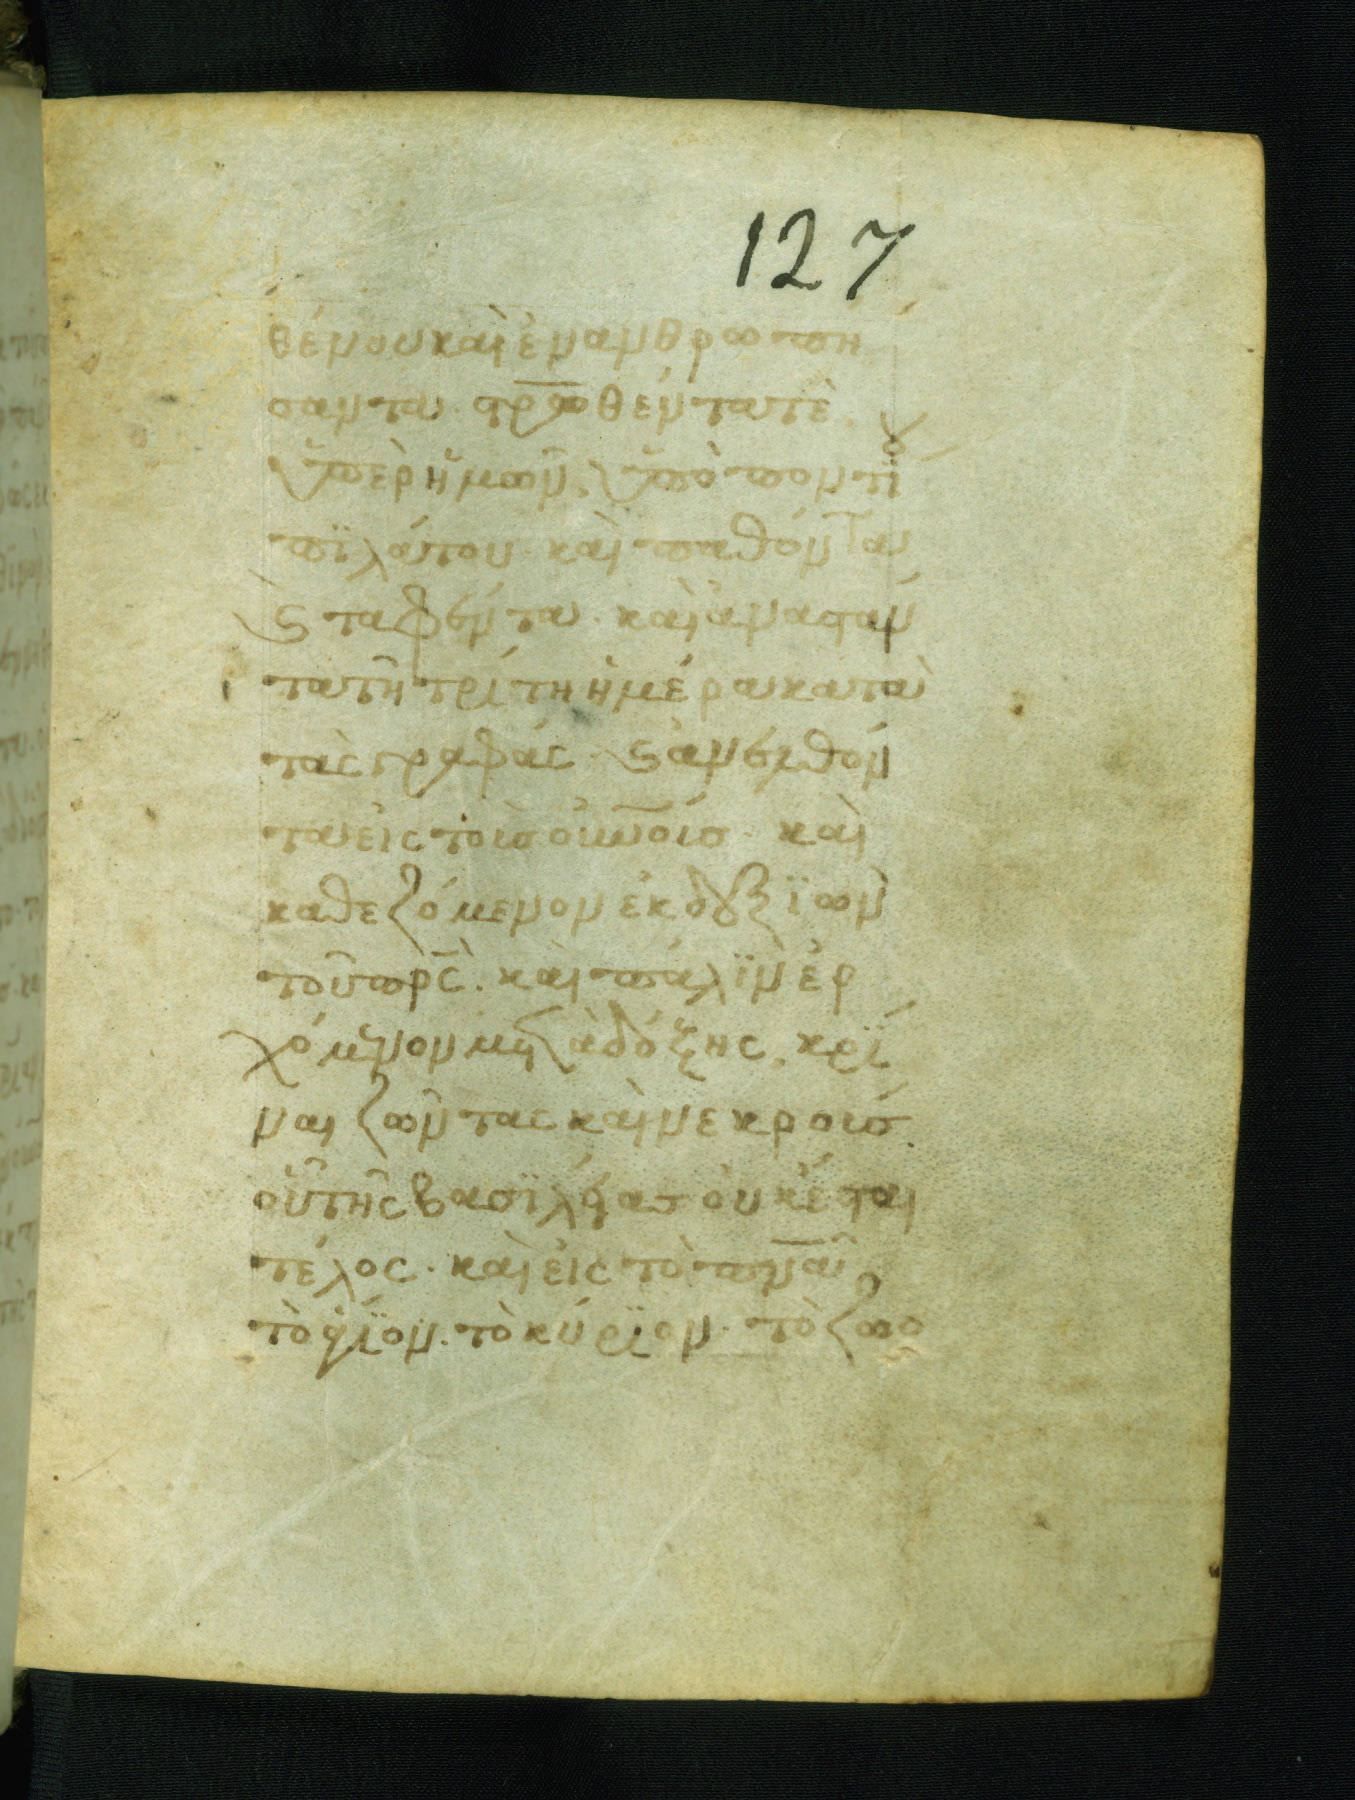 127
θένου καὶ ἐνανθρωπη
σαντα· στρ̅ωθέντα τὲ
ὑπὲρ ἡμῶν· ὑπὸ ποντίου
πϊλάτου· καὶ παθόντα
ϗ ταφέντα· καὶ ἀναστάν
τα τῆ τρίτη ἡμέρα κατὰ
τὰς γραφάς· ϗ ἀνελθόν
τα εἰς τοὺσ οὐν̅οὺσ· καὶ
καθεζόμενον ἐκ δεξϊῶν
τοῦ πρ̅ς· καὶ πάλϊν ἐρ
χόμενον μετὰ δόξης· κρῖ
ναι ζῶντας καὶ νεκρούσ·
οὗ τῆς βασϊλείασ οὐκ ἔσται
τέλος· καὶ εἰς τὸ πν̅α
τὸ ἅγϊον· τὸ κύρϊον· τὸ ζωο